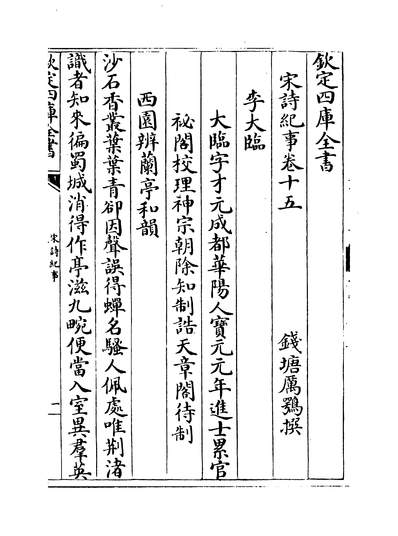 欽定四庫全書
宋詩紀事卷十五
錢塘厲鶚撰
李大臨
大臨字才元成都華陽人寶元元年進士累官
祕閣校理神宗朝除知制誥天章閣待制
西園辨蘭亭和韻
沙石香叢葉葉青卻因聲誤得蟬名騷人佩處唯荆渚
識者知來徧蜀城消得作亭滋九畹便當入室異羣英
欽定四庫全書
宋詩紀事
一